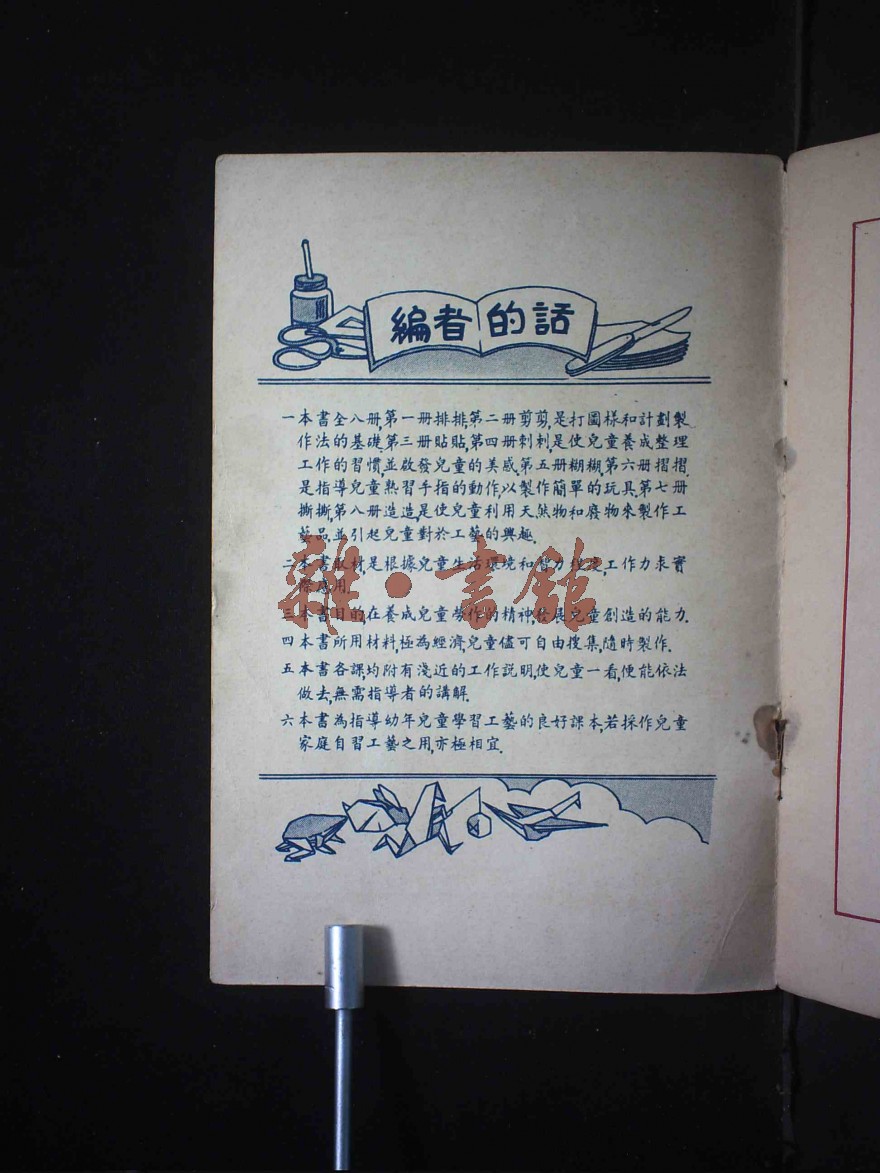 編者的話
一本書全八册,第一册排排,第二册剪剪,是打圖樣和計劃製
作法的基礎.第三册貼貼,第四册刺刺,是使兒童養成整理
工作的習慣,並啟發兒童的美感.第五册糊糊,第六册摺摺.
是指導兒童熟習手指的動作,以製作簡單的玩具.第七册
撕撕,第八册造造,是使兒童利用天然物和廢物來製作工
藝品.並引起兒童對於工藝的興趣.
二本書取材,是根據兒童生活環境和智力程度,工作力求實
際應用.
三本書目的,在養成兒童勞作的精神,發展兒童創造的能力.
四本書所用材料,極為經濟,兒童儘可自由搜集,隨時製作.
五本書各課,均附有淺近的工作説明,使兒童一看,便能依法
做去,無需指導者的講解.
六本書為指導幼年兒童學習工藝的良好課本,若採作兒童
家庭自習工藝之用,亦極相宜.
雜·書館